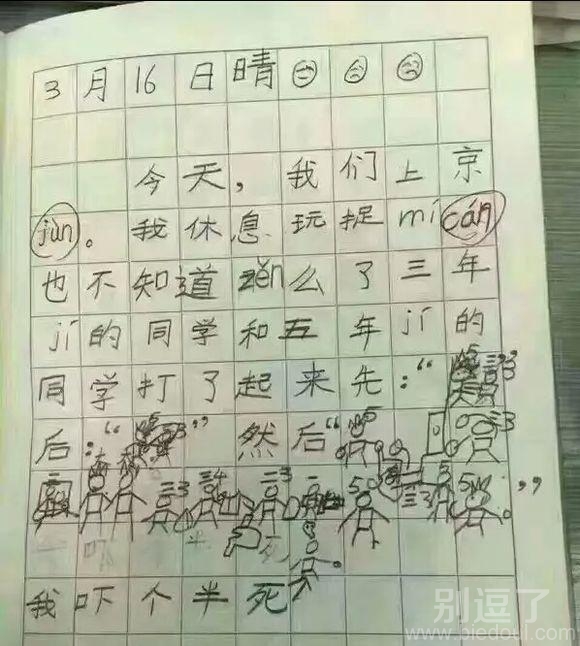 3月16日晴
今天，我们上京
jùn。我休息玩捉mí cán
也不知道zěn么了三年
jí的同学和五年jí的
同学打了起来先：“
后：“”然后“
”
吓 半死
我吓个半死
别逗了
www.biedoul.com